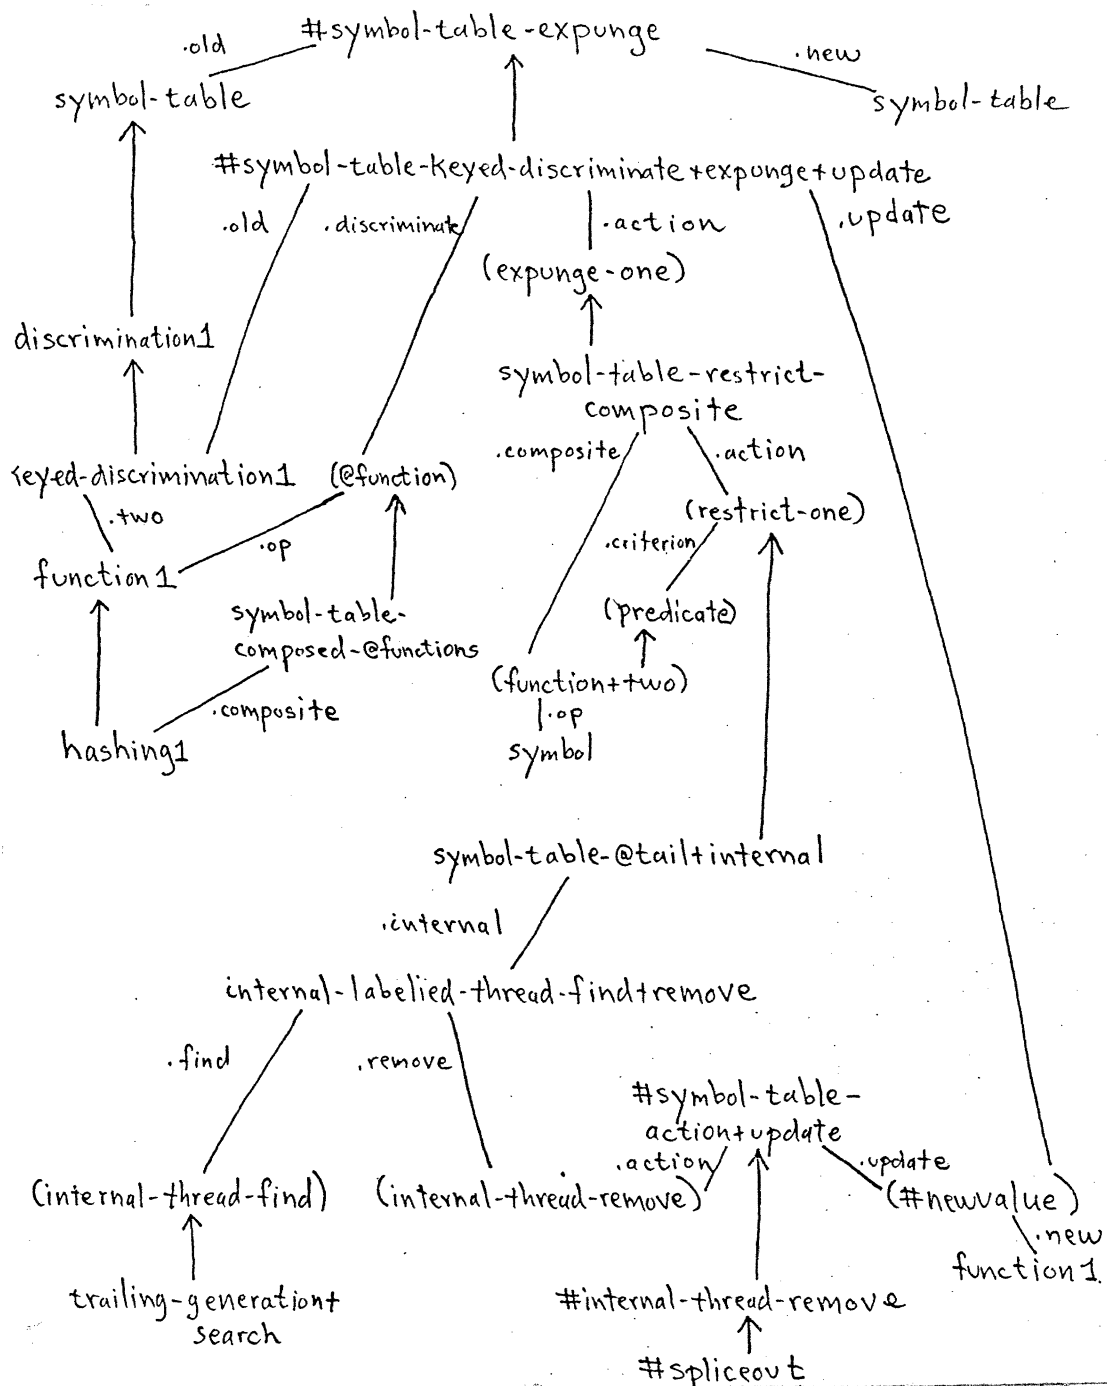 #symbol-table-expunge
.old
.new
symbol-table
symbol-table
#symbol-table-keyed-discriminate+expunge+update
.old
.discriminate
.action
.update
(expunge-one)
discrimination1
symbol-table-restrict-
composite
.composite
.action
keyed-discrimination1
(@function)
.two
(restrict-one)
.op
.criterion
function1
symbol-table-
composed-@functions
(predicate)
(function+two)
.composite
.op
hashing1
symbol
symbol-table-@tail+internal
.internal
internal-labelled-thread-find+remove
.find
.remove
#symbol-table-
action+update
.action
.update
(internal-thread-find)
(internal-thread-remove)
(#newvalue)
.new
function1.
trailing-generation+
search
#internal-thread-remove
#spliceout